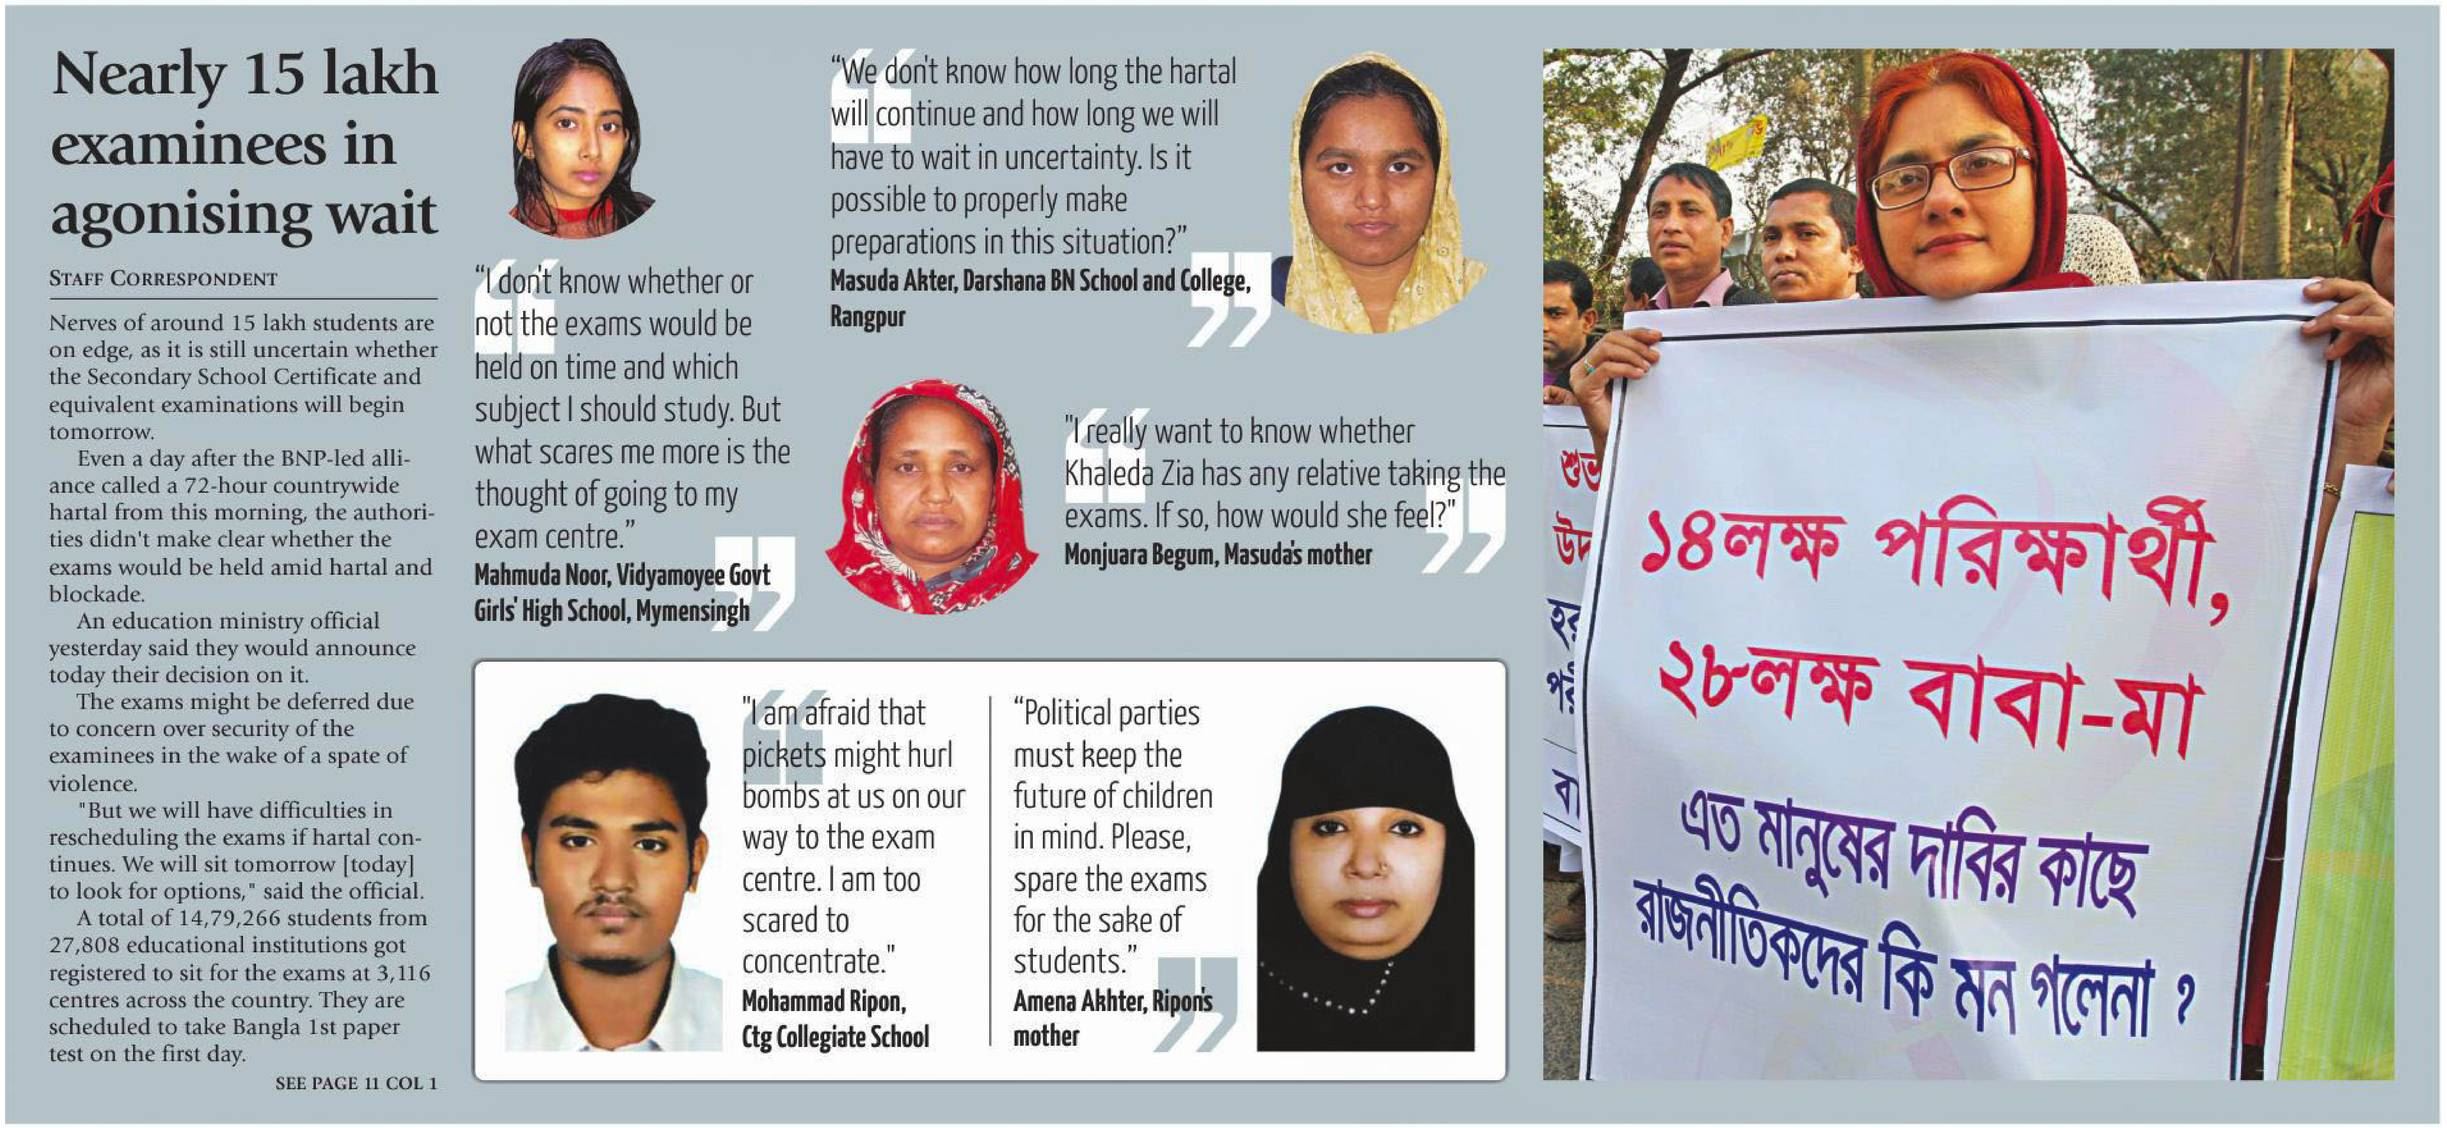 Nearly 15 lakh
examinees in
agonising wait
STAFF CORRESPONDENT
Nerves of around 15 lakh students are
on edge, as it is still uncertain whether
the Secondary School Certificate and
equivalent examinations will begin
tomorrow.
Even a day after the BNP-led alli-
ance called a 72-hour countrywide
hartal from this morning, the authori-
ties didn't make clear whether the
exams would be held amid hartal and
blockade.
An education ministry official
yesterday said they would announce
today their decision on it.
The exams might be deferred due
to concern over security of the
examinees in the wake of a spate of
violence.
"But we will have difficulties in
rescheduling the exams if hartal con-
tinues. We will sit tomorrow [today]
to look for options," said the official.
A total of 14,79,266 students from
27,808 educational institutions got
registered to sit for the exams at 3,116
centres across the country. They are
scheduled to take Bangla 1st paper
test on the first day.
SEE PAGE 11 COL 1
“I don't know whether or
not the exams would be
held on time and which
subject I should study. But
what scares me more is the
thought of going to my
exam centre.”
Mahmuda Noor, Vidyamoyee Govt
Girls' High School, Mymensingh
“We don't know how long the hartal
will continue and how long we will
have to wait in uncertainty. Is it
possible to properly make
preparations in this situation?”
Masuda Akter, Darshana BN School and College,
Rangpur
"I really want to know whether
Khaleda Zia has any relative taking the
exams. If so, how would she feel?"
Monjuara Begum, Masuda's mother
"I am afraid that
pickets might hurl
bombs at us on our
way to the exam
centre. I am too
scared to
concentrate."
Mohammad Ripon,
Ctg Collegiate School
“Political parties
must keep the
future of children
in mind. Please,
spare the exams
for the sake of
students.”
Amena Akhter, Ripon's
mother
১৪লক্ষ পরিক্ষার্থী,
২৮লক্ষ বাবা-মা
এত মানুষের দাবির কাছে
রাজনীতিকদের কি মন গলেনা ?